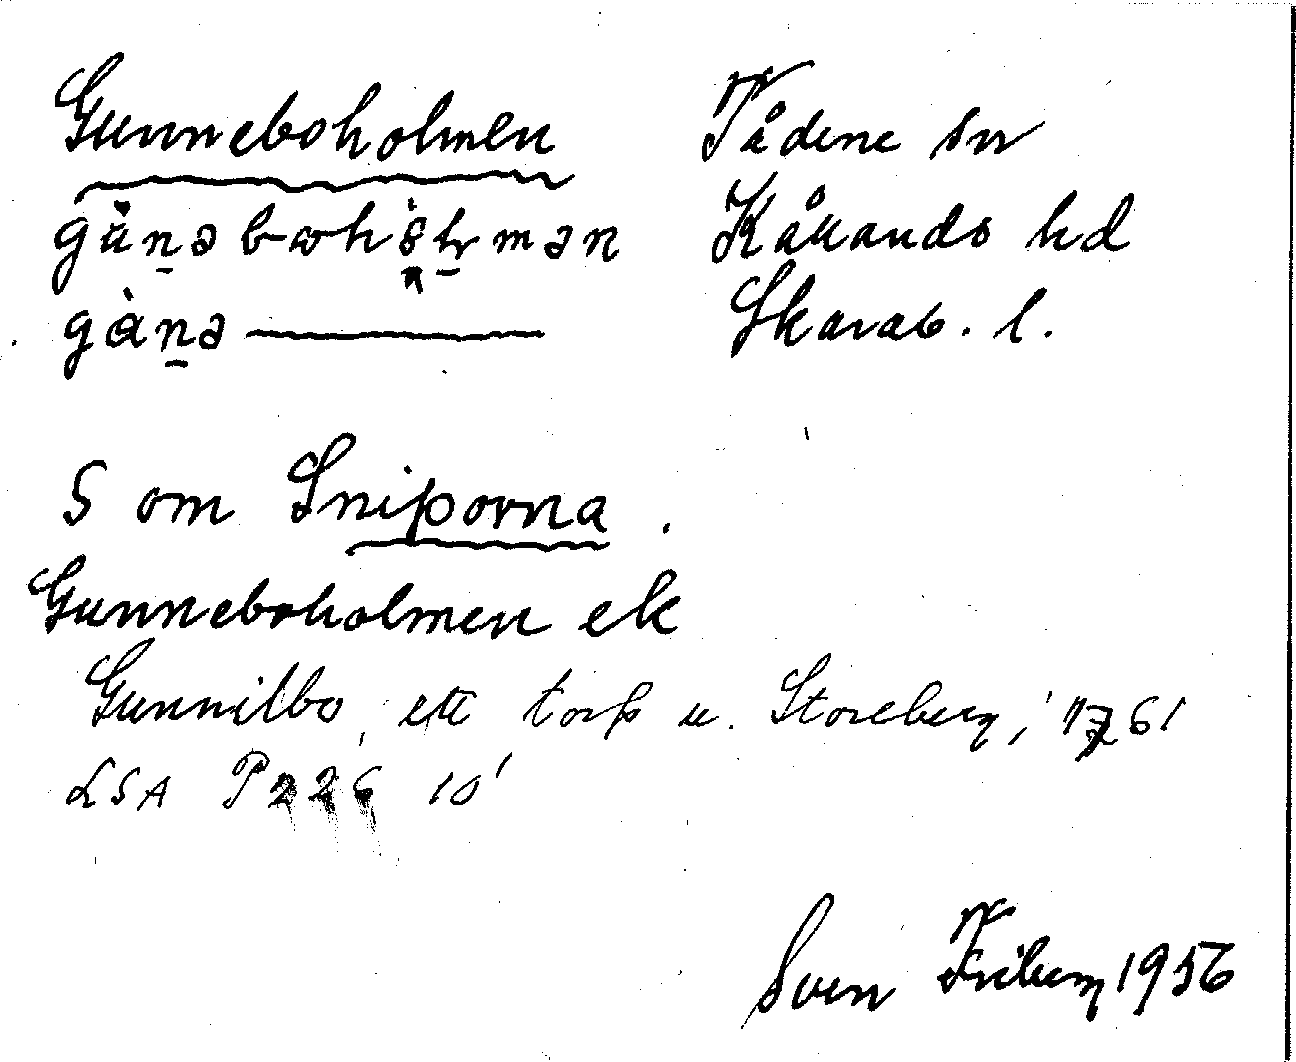 Gunneboholmen
gu̇n̠əbωhȯl̠mən
gàn̠ə ———
Tådene sn
Kållands hd
Skarab. l.
S om Sniporna.
Gunneboholmen ek
Gunnilbo, ett torp u. Storeberg, 1761
LSA P226 10'
Sven Friberg 1956